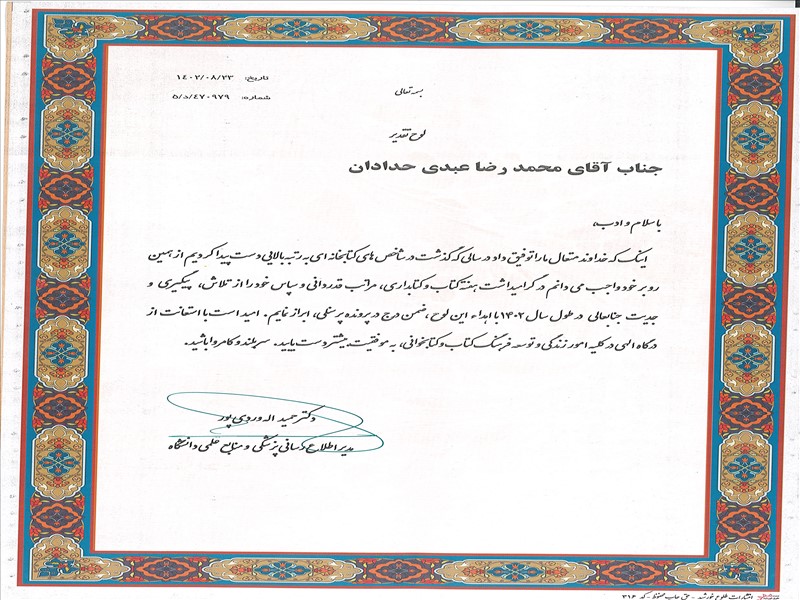 تاریخ: ۱۴۰۲/۰۸/۲۳
شماره: ۵/د/۴۷۰۹۷۹
بسمه تعالی
لوح تقدیر
جناب آقای محمد رضا عبدی حدادان
با سلام و ادب،
اینک که خداوند متعال ما را توفیق داد در سالی که گذشت در شاخص های کتابخانه ای به رتبه بالایی دست پیدا کردیم از همین
رو بر خود واجب می دانم در گرامیداشت هفته کتاب و کتابداری، مراتب قدردانی و سپاس خود را از تلاش، پیگیری و
جدیت جنابعالی در طول سال ۱۴۰۲ با اهداء این لوح، ضمن درج در پرونده پرسنلی، ابراز نمایم. امید است با استعانت از
درگاه الهی در کلیه امور زندگی و توسعه فرهنگ کتاب و کتابخوانی، به موفقیت بیشتر دست یابید. سربلند و کامروا باشید.
دکتر حمید اله وردی پور
مدیر اطلاع رسانی پزشکی و منابع علمی دانشگاه
انتشارات طلوع خورشید - حق چاپ محفوظ - کد ۳۱۶